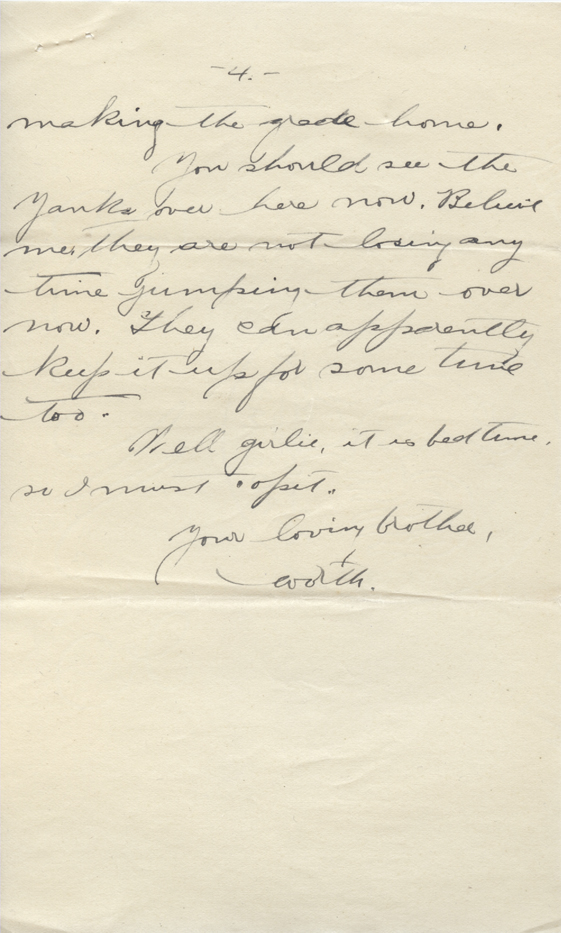 -4.-
making the grade home.
You should see the
Yanks over here now. Believe
me, they are not losing any
time jumping them over
now. They can apparently
keep it up for some time
too.
Well girlie, it is bedtime.
so I must
Your loving brother,
Worth.